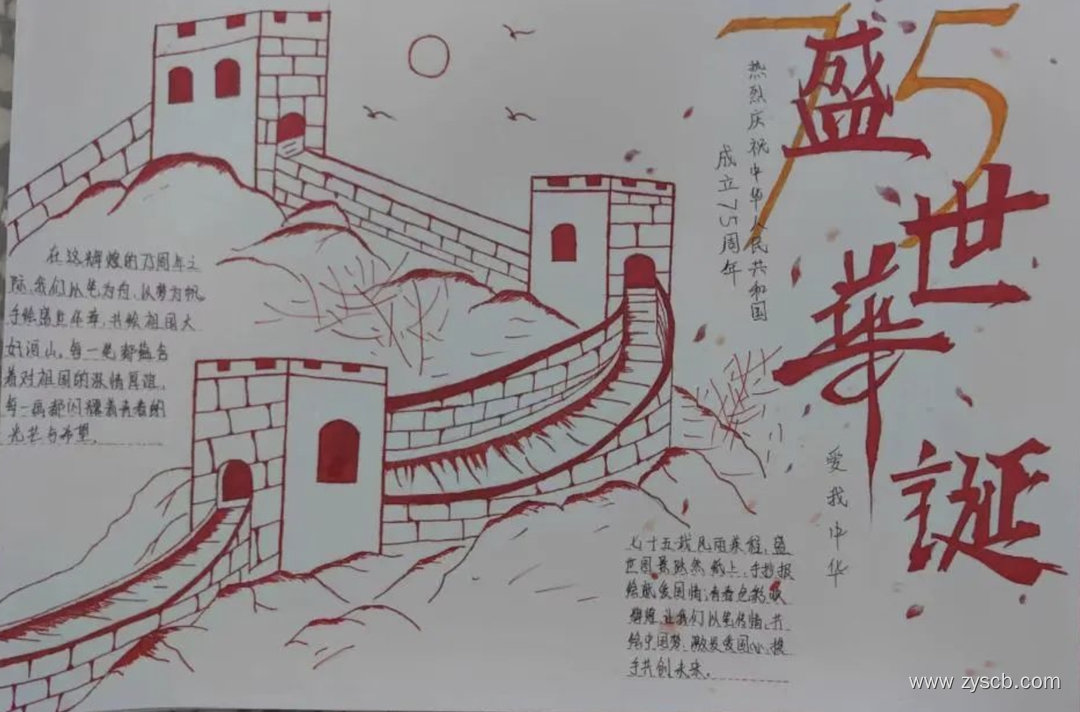 75
盛世華誕
热烈庆祝中华人民共和国
成立75周年
爱我中华
在这辉煌的75周年之
际,我们以笔为舟,以梦为帆,
手绘盛世华章,共绘祖国大
好河山。每一笔都蕴含
着对祖国的深情厚谊,
每一画都闪耀着青春的
光芒与希望。
七十五载风雨兼程,盛
世图景跃然纸上,手抄报
绘就爱国情,青春色彩
辉煌,让我们以笔传情,共
绘中国梦,激发爱国心,携
手共创未来。
www.zyscb.com